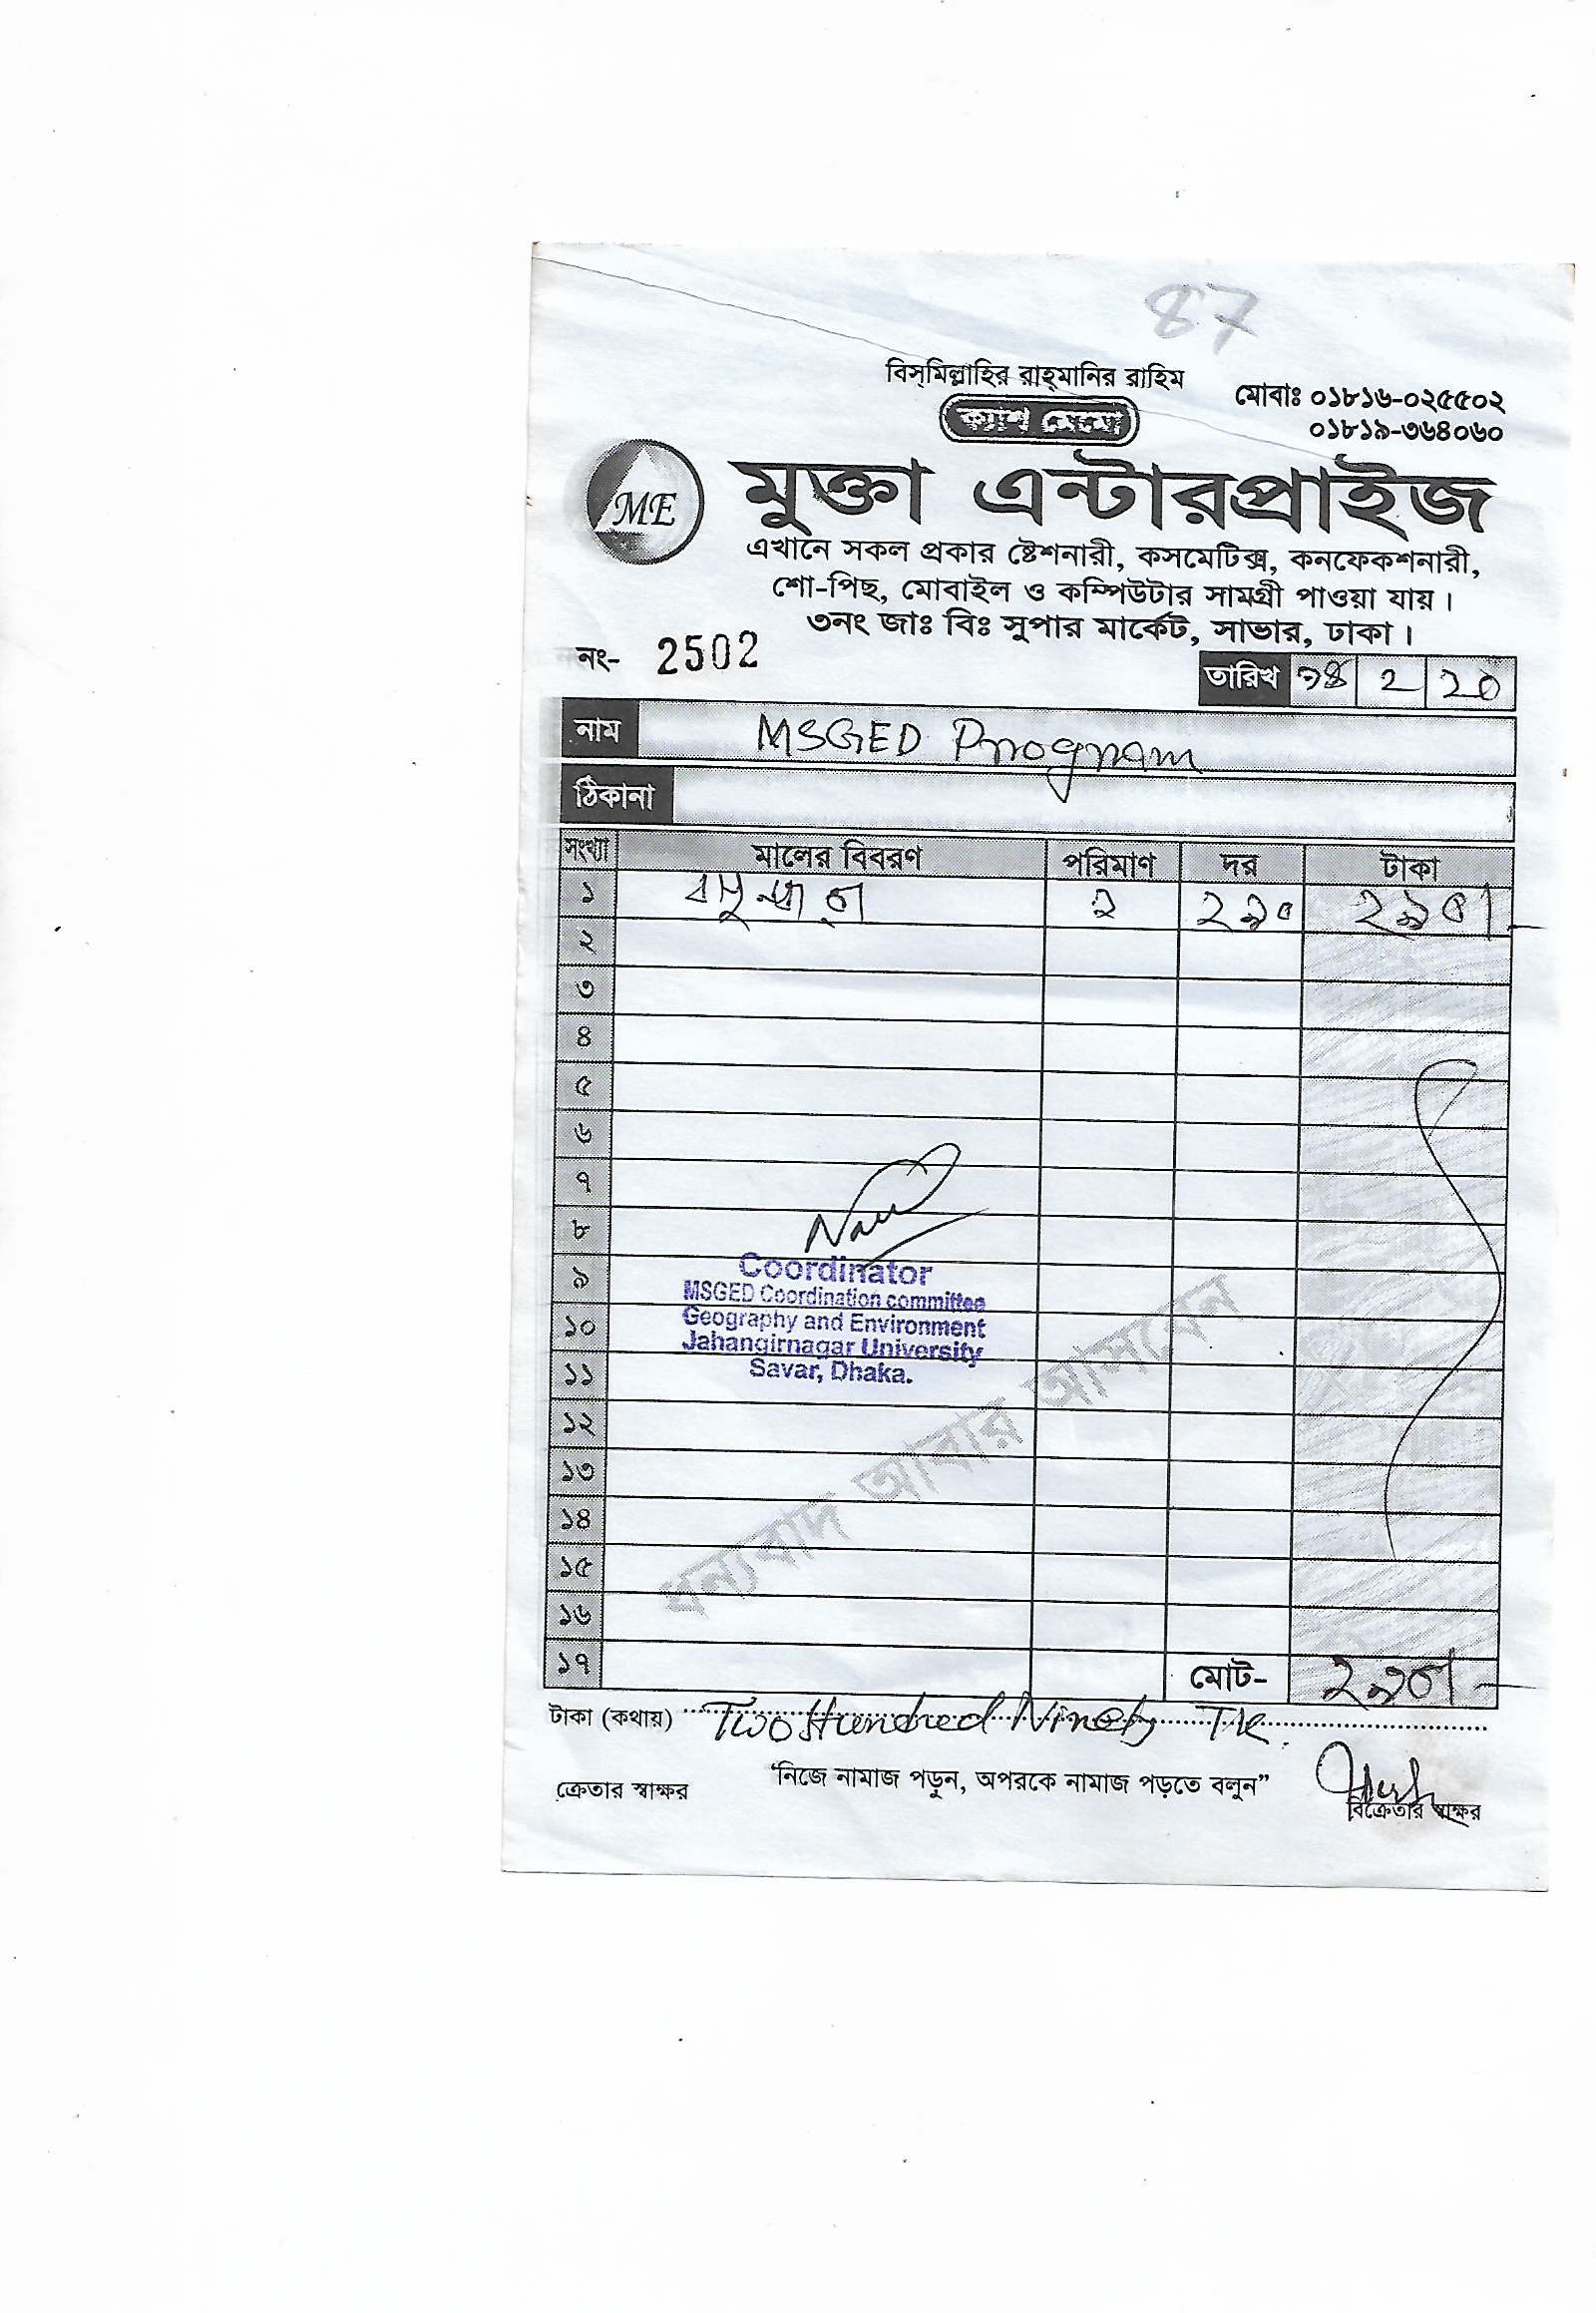 87
বিস্‌মিল্লাহির রাহ্‌মানির রাহিম
মোবাঃ ০১৮১৬-০২৫৫০২
০১৮১৯-৩৬৪০৬০
ক্যাশ মেমো
ME
মুক্তা এন্টারপ্রাইজ
এখানে সকল প্রকার ষ্টেশনারী, কসমেটিক্স, কনফেকশনারী,
শো-পিছ, মোবাইল ও কম্পিউটার সামগ্রী পাওয়া যায়।
৩নং জাঃ বিঃ সুপার মার্কেট, সাভার, ঢাকা।
নং- 2502
তারিখ 2 20
নাম MSGED Program
ঠিকানা
সংখ্যা মালের বিবরণ পরিমাণ দর টাকা
১ বসুন্ধরা ২৯০ ২৯০/-
২
৩
৪
৫
৬
৭
৮
৯
১০
১১
১২
১৩
১৪
১৫
১৬
১৭ মোট- ২৯০/-
Coordinator
MSGED Coordination committee
Geography and Environment
Jahangirnagar University
Savar, Dhaka.
ধন্যবাদ আবার আসবেন
টাকা (কথায়) Two Hundred Ninety TK.
ক্রেতার স্বাক্ষর
‘নিজে নামাজ পড়ুন, অপরকে নামাজ পড়তে বলুন”
বিক্রেতার স্বাক্ষর